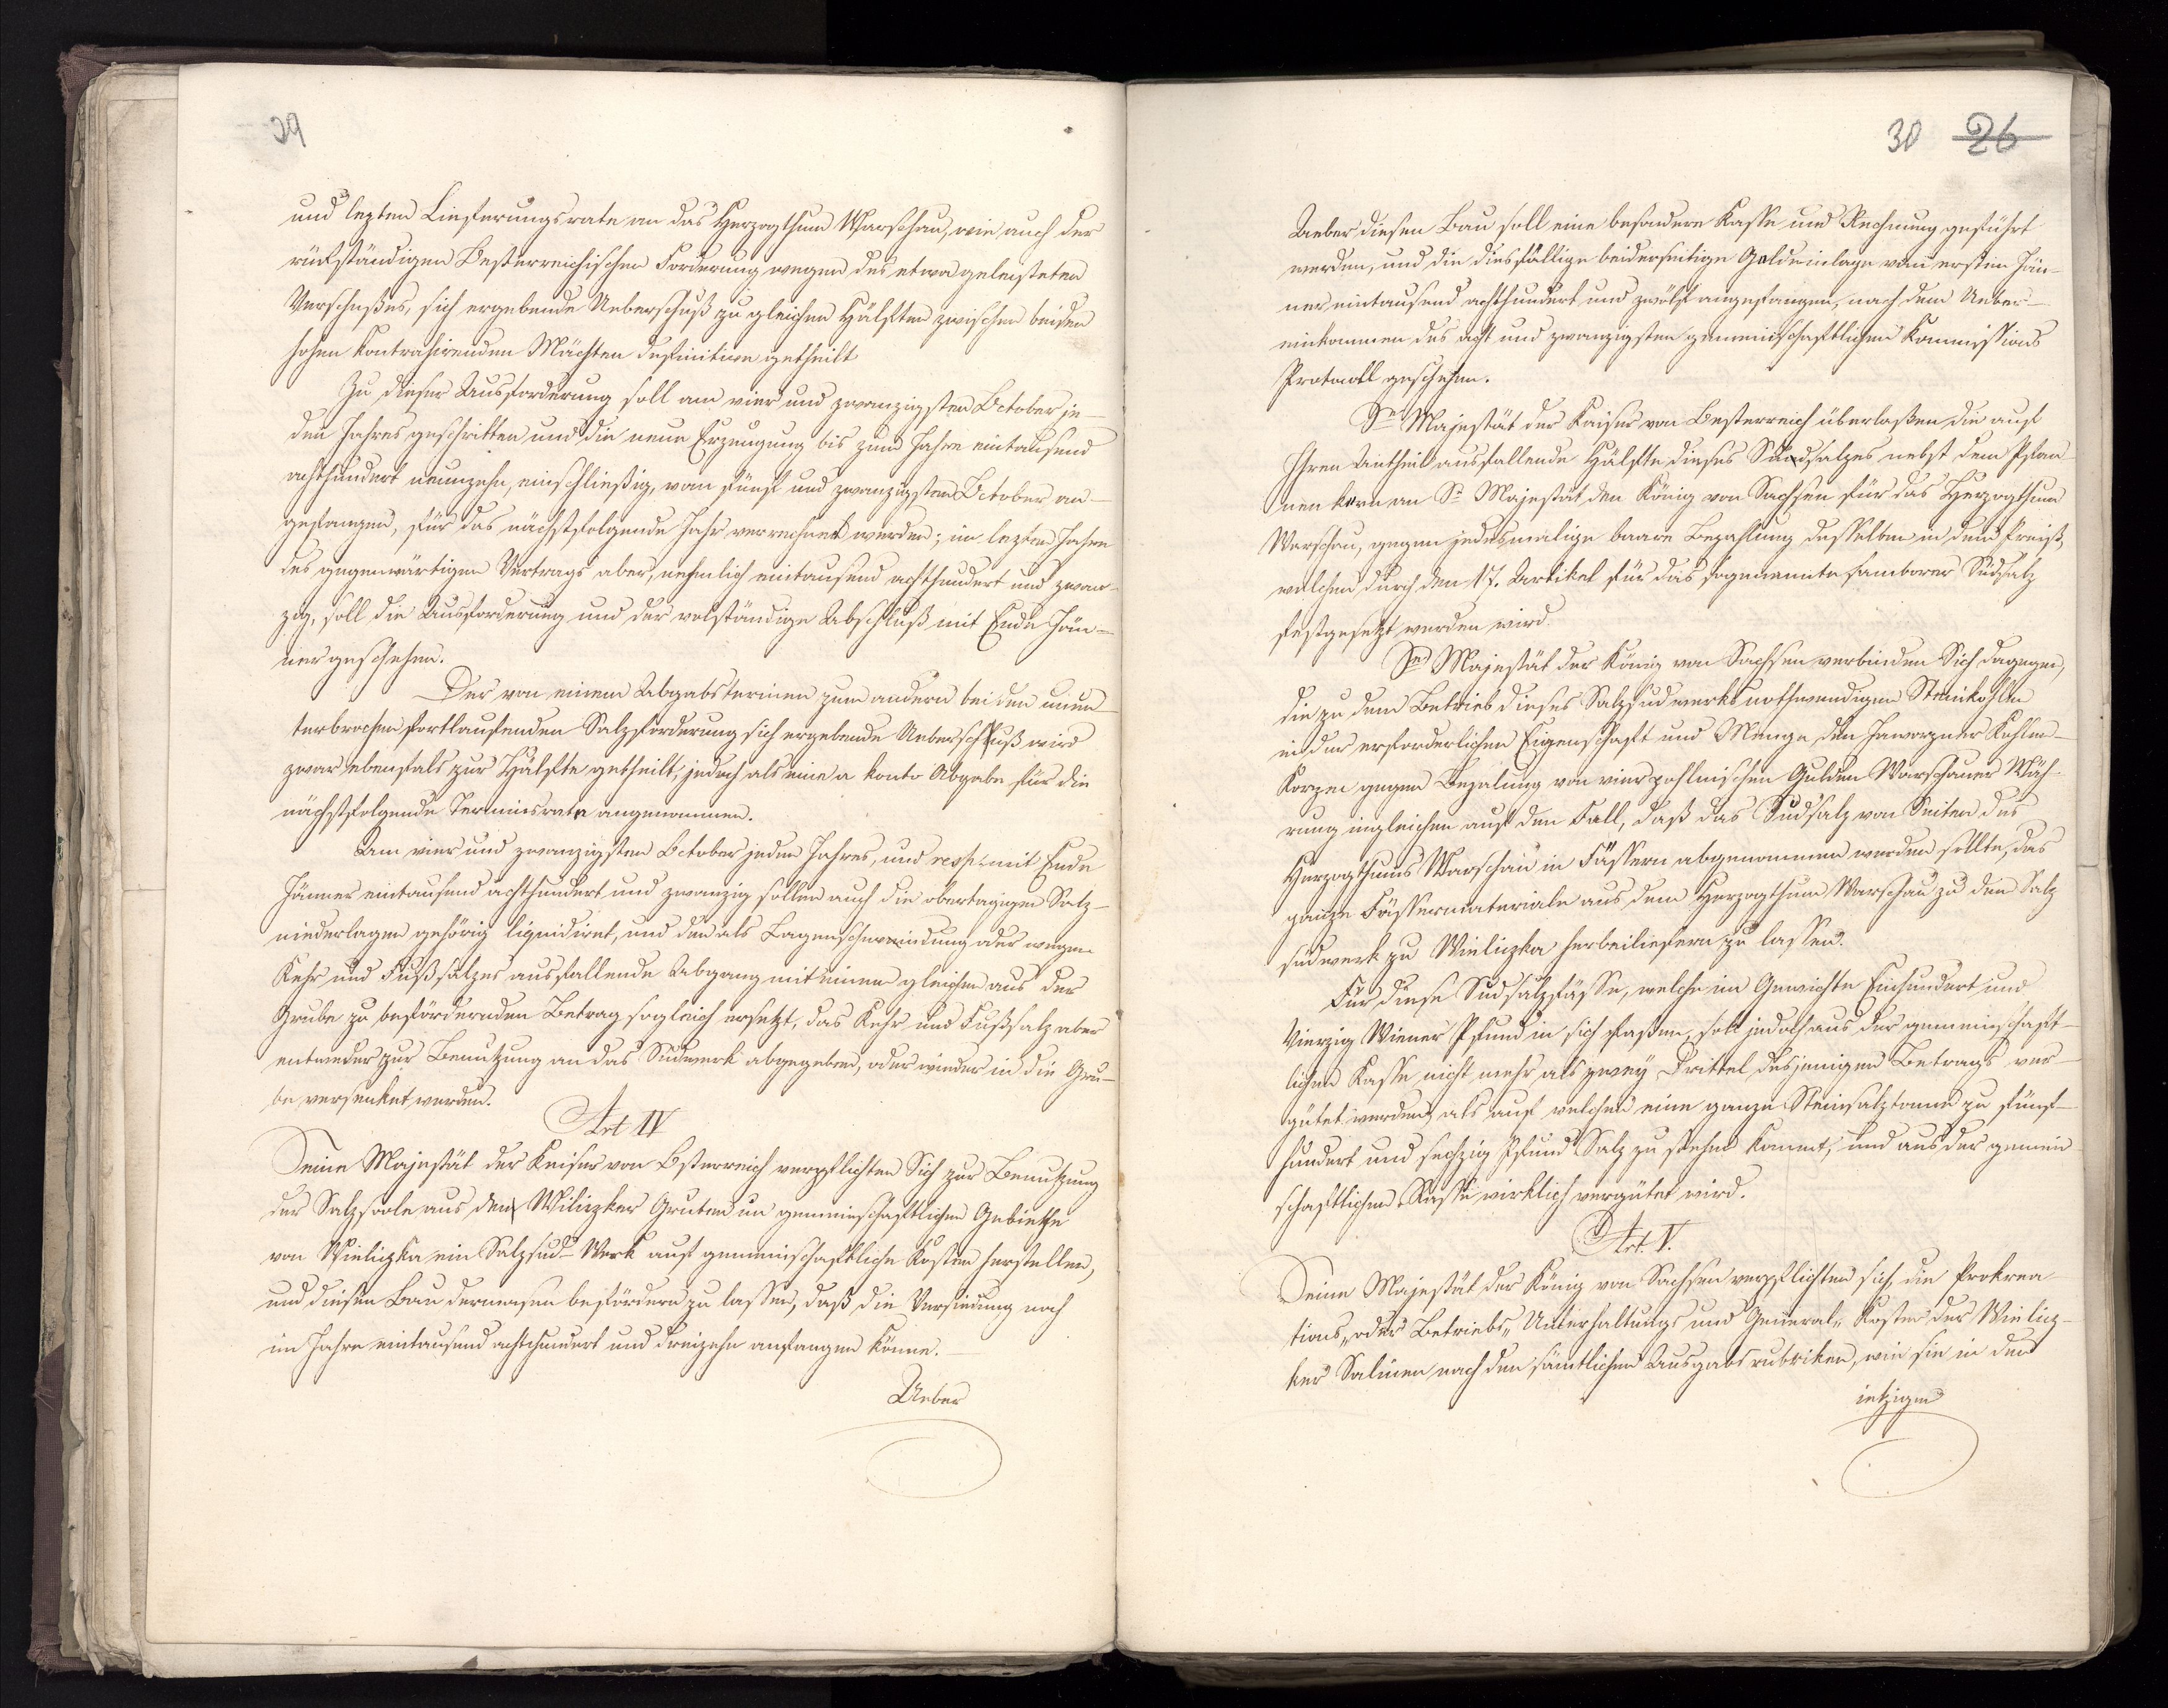 29
und lezten Lieferungsrate an das Herzogthum Warschau, wie auch der
rükständigen Oesterreichischen Forderung wegen des etwa geleisteten
Vorschußes, sich ergebende Ueberschuß zu gleichen Hälften zwischen beiden
hohen Kontrahirenden Mächten definitive getheilt
Zu dieser Ausforderung soll am vier und zwanzigsten October je-
den Jahres geschritten und die neue Erzeugung bis zum Jahre eintausend
achthundert neunzehn, einschließig, vom fünf und zwanzigsten October an-
gefangen, für das nächstfolgende Jahr verrechnet werden; im lezten Jahre
des gegenwärtigen Vertrags aber, nehmlich eintausend achthundert und zwan-
zig, soll die Ausforderung und der volständige Abschluß mit Ende Jän-
ner geschehen.
Der von einem Abgabstermine zum andern bei der unun-
terbrochen fortlaufenden Salzforderung sich ergebende Ueberschuß wird
zwar ebenfals zur Hälfte getheilt, jedoch als eine a konto Abgabe für die
nächstfolgende Terminsrate angenommen.
Am vier und zwanzigsten October jeden Jahres, und resp. mit Ende
Jänner eintausend achthundert und zwanzig sollen auch die obertagigen Salz-
niederlagen gehörig liquidiret, und der als Lagerschwendung oder wegen
Kehr und Fußsalzes ausfallende Abgang mit einem gleichen aus der
Grube zu befördernden Betrag sogleich ersetzt, das Kehr und Fußsalz aber
entweder zur Benutzung an das Sudwerk abgegeben, oder wieder in die Gru-
be versenket werden.
Art IV
Seine Majestät der Keiser von Österreich verpflichten Sich zur Benutzung
der Salzsoole aus den Wiliczker Gruben im gemeinschaftlichen Gebiethe
von Wieliczka ein Salzsud-Werk auf gemeinschaftliche Kosten herstellen,
und diesen Bau dermasen befördern zu lassen, daß die Versiedung noch
im Jahre eintausend achthundert und dreizehn anfangen könne.
Ueber
30 26
Ueber diesen Bau soll eine besondere Kasse und Rechnung geführt
werden, und die diesfällige beiderseitige Geldeinlage vom ersten Jän-
ner eintausend achthundert und zwölf angefangen, nach dem Ueber-
einkommen des acht und zwanzigsten gemeinschaftlichen Kommissions
Protocoll geschehen.
Se Majestät der Kaiser von Oesterreich überlaßen die auf
Ihren Antheil ausfallende Hälfte dieses Sudsalzes nebst dem Pfan-
nen kern an Se Majestät den König von Sachsen für das Herzogthum
Warschau, gegen jedesmalige baare Bezahlung desselben in dem Preiß,
welcher durch den 17. Artikel für das sogenannte samborer Sudsalz
festgesetzt werden wird.
Se Majestät der König von Sachsen verbinden Sich dagegen,
die zu dem Betrieb dieses Salzsudwerks nothwendigen Steinkohlen
in der erforderlichen Eigenschaft und Menge den Jaworzner Kohlen-
Korzec gegen Bezalung von vier pohlnischen Gulden Warschauer Wäh-
rung ingleichen auf den Fall, daß das Sudsalz von Seiten des
Herzogthums Warschau in Fässern abgenommen werden sollte, das
ganze Fässermateriale aus dem Herzogthum Warschau zu dem Salz
sudwerk zu Wieliczka herbeiliefern zu lassen.
Für diese Sudsalzfässe, welche im Gewichte Einhundert und
Vierzig Wiener Pfund in sich faßen, soll jedoch aus der gemeinschaft-
lichen Kasse nicht mehr als zwey Drittel desjenigen Betrags ver-
gütet werden, als auf welchen eine ganze Steinsalztonne zu fünf-
hundert und sechzig Pfund Salz zu stehen kommt, und aus der gemein-
schaftlichen Kasse wirklich vergütet wird.
Art. V.
Seine Majestät der König von Sachsen verpflichten sich, die Prokrea-
tions, oder Betriebs, Unterhaltungs und General, Kosten der Wielicz-
ker Salinen nach den sämtlichen Ausgabs rubriken, wie sie in den
ietzigen